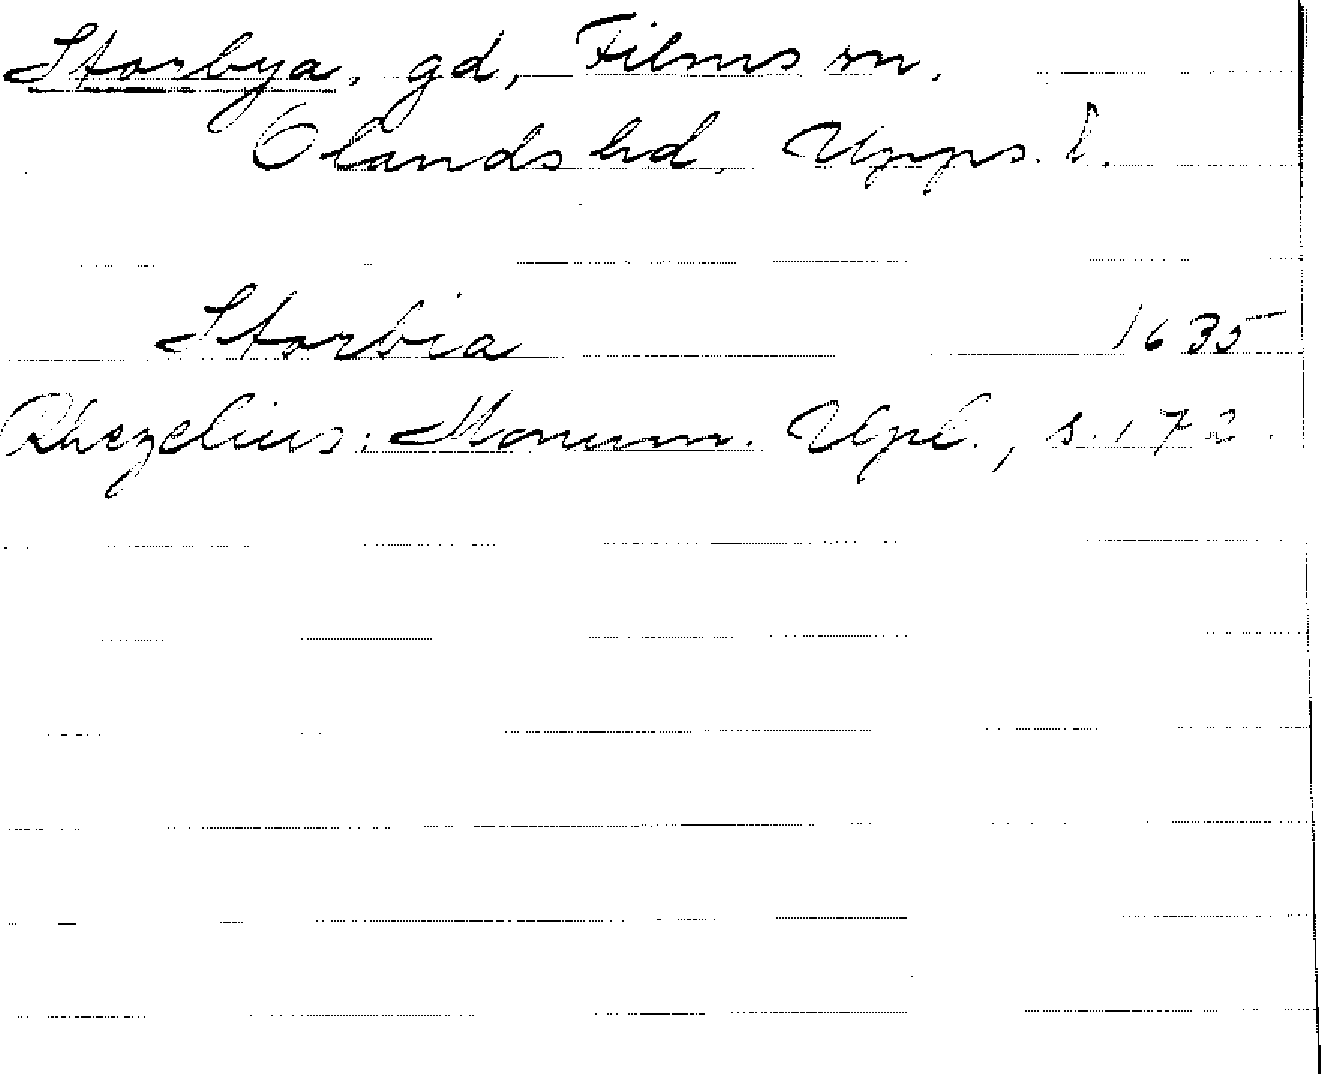 Storbya, gd, Films sn.
Olands hd, Upps. l.
Storbia 1635
Rhezelius: Monum. Upl., s. 172.